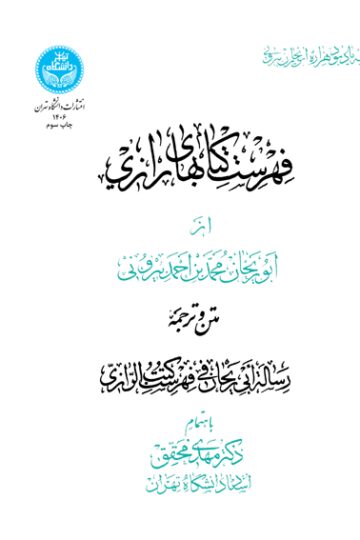 بیاد بود هزارهٔ ابوریحان بیرونی
انتشارات دانشگاه تهران
۱۴۰۶
چاپ سوم
فهرست کتابهای رازی
از
ابوریحان محمد بن احمد بیرونی
متن و ترجمهٔ
رسالة ابی ریحان فی فهرست کتب الرازی
باهتمام
دکتر مهدی محقق
استاد دانشگاه تهران